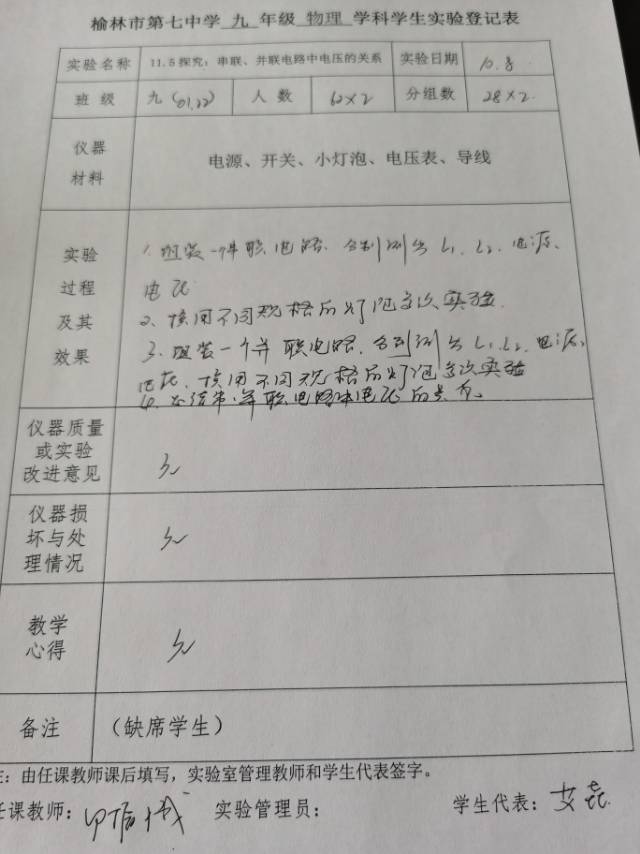 榆林市第七中学 九 年级 物理 学科学生实验登记表
实验名称 11.5探究：串联、并联电路中电压的关系 实验日期 10.8
班 级 九 人 数 62×2 分组数 28×2
仪器
材料
电源、开关、小灯泡、电压表、导线
实验
过程
及其
效果
1. 组装一个串联电路，分别测出L₁、L₂、电源、
电压
2、换用不同规格的灯泡多次实验.
3、组装一个并联电路，分别测出L₁、L₂、电源、
电压，换用不同规格的灯泡多次实验
4、总结串、并联电路中电压的关系。
仪器质量
或实验
改进意见
无
仪器损
坏与处
理情况
无
教学
心得
无
备注 （缺席学生）
：由任课教师课后填写，实验室管理教师和学生代表签字。
任课教师： 实验管理员： 学生代表：艾